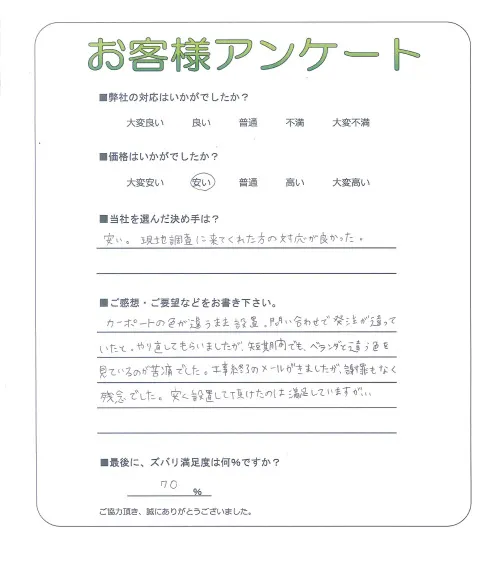 お客様アンケート
■弊社の対応はいかがでしたか？
大変良い 良い 普通 不満 大変不満
■価格はいかがでしたか？
大変安い 安い 普通 高い 大変高い
■当社を選んだ決め手は？
安い。現地調査に来てくれた方の対応が良かった。
■ご感想・ご要望などをお書き下さい。
カーポートの色が違うまま設置。問い合わせで発注が違って
いたと。やり直してもらいましたが、短期間でも、ベランダと違う色を
見ているのが苦痛でした。工事終了のメールがきましたが、謝罪もなく
残念でした。安く設置して頂けたのは満足していますが、、
■最後に、ズバリ満足度は何％ですか？
70 ％
ご協力頂き、誠にありがとうございました。